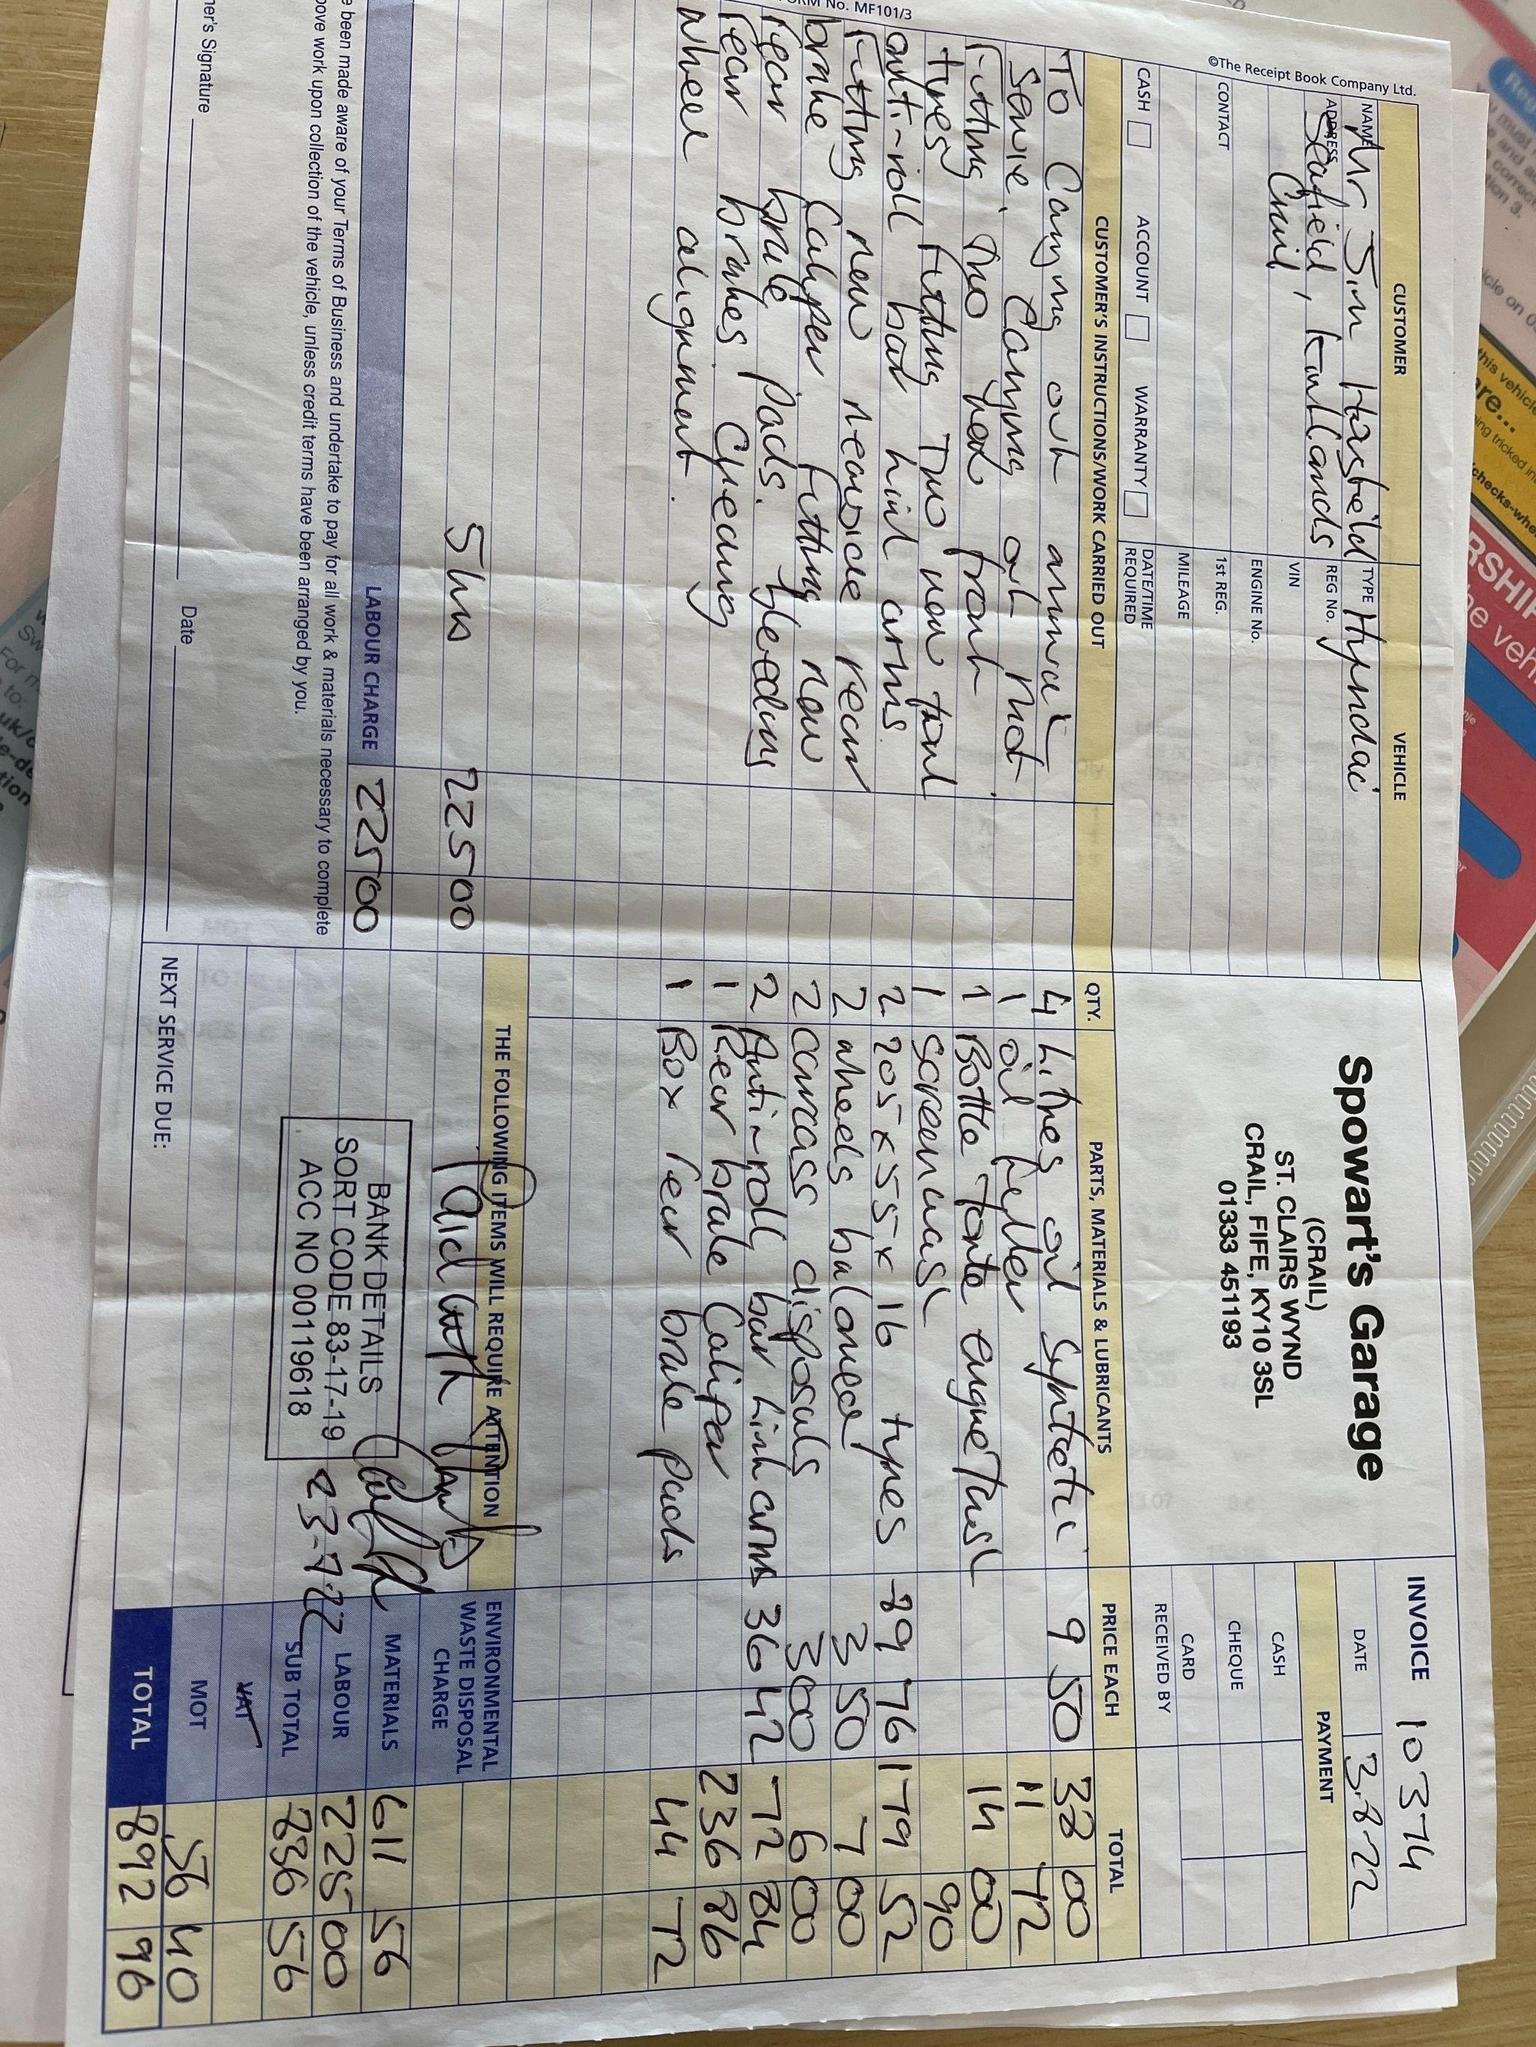 FORM No. MF101/3
©The Receipt Book Company Ltd.
CUSTOMER
VEHICLE
NAME Mr Jim Horsfield
TYPE Hyundai
ADDRESS Seafield,
REG No.
Crail
VIN
ENGINE No.
CONTACT
1st REG.
MILEAGE
CASH
ACCOUNT
WARRANTY
DATE/TIME REQUIRED
Spowart's Garage
(CRAIL)
ST. CLAIRS WYND
CRAIL, FIFE, KY10 3SL
01333 451193
INVOICE 10374
DATE 3.8.22
PAYMENT
CASH
CHEQUE
CARD
RECEIVED BY
CUSTOMER'S INSTRUCTIONS/WORK CARRIED OUT
To Carrying out annual
Service, Carrying out Mot
Fitting Two new front
tyres Fitting Two new front
anti-roll bar link arms.
Fitting new nearside rear
brake Caliper fitting new
rear brake pads. bleeding
rear brakes Checking
wheel alignment.
5 hrs 225 00
LABOUR CHARGE 225 00
QTY. PARTS, MATERIALS & LUBRICANTS PRICE EACH TOTAL
4 Litres oil Syntetic 9 50 38 00
1 oil filter 11 72
1 Bottle Forte engine flush 14 00
1 Screenwash 90
2 205 x 55 x 16 tyres 89 76 179 52
2 wheels balanced 3 50 7 00
2 carcass disposals 3 00 6 00
2 Anti-roll bar link arms 36 42 72 84
1 Rear brake Caliper 236 86
1 Box rear brake pads 44 72
THE FOLLOWING ITEMS WILL REQUIRE ATTENTION
Paid with Thanks
BANK DETAILS
SORT CODE 83-17-19
ACC NO 00119618
ENVIRONMENTAL WASTE DISPOSAL CHARGE
MATERIALS 611 56
LABOUR 225 00
SUB TOTAL 836 56
VAT
MOT 56 40
TOTAL 892 96
NEXT SERVICE DUE:
e been made aware of your Terms of Business and undertake to pay for all work & materials necessary to complete
bove work upon collection of the vehicle, unless credit terms have been arranged by you.
mer's Signature
Date